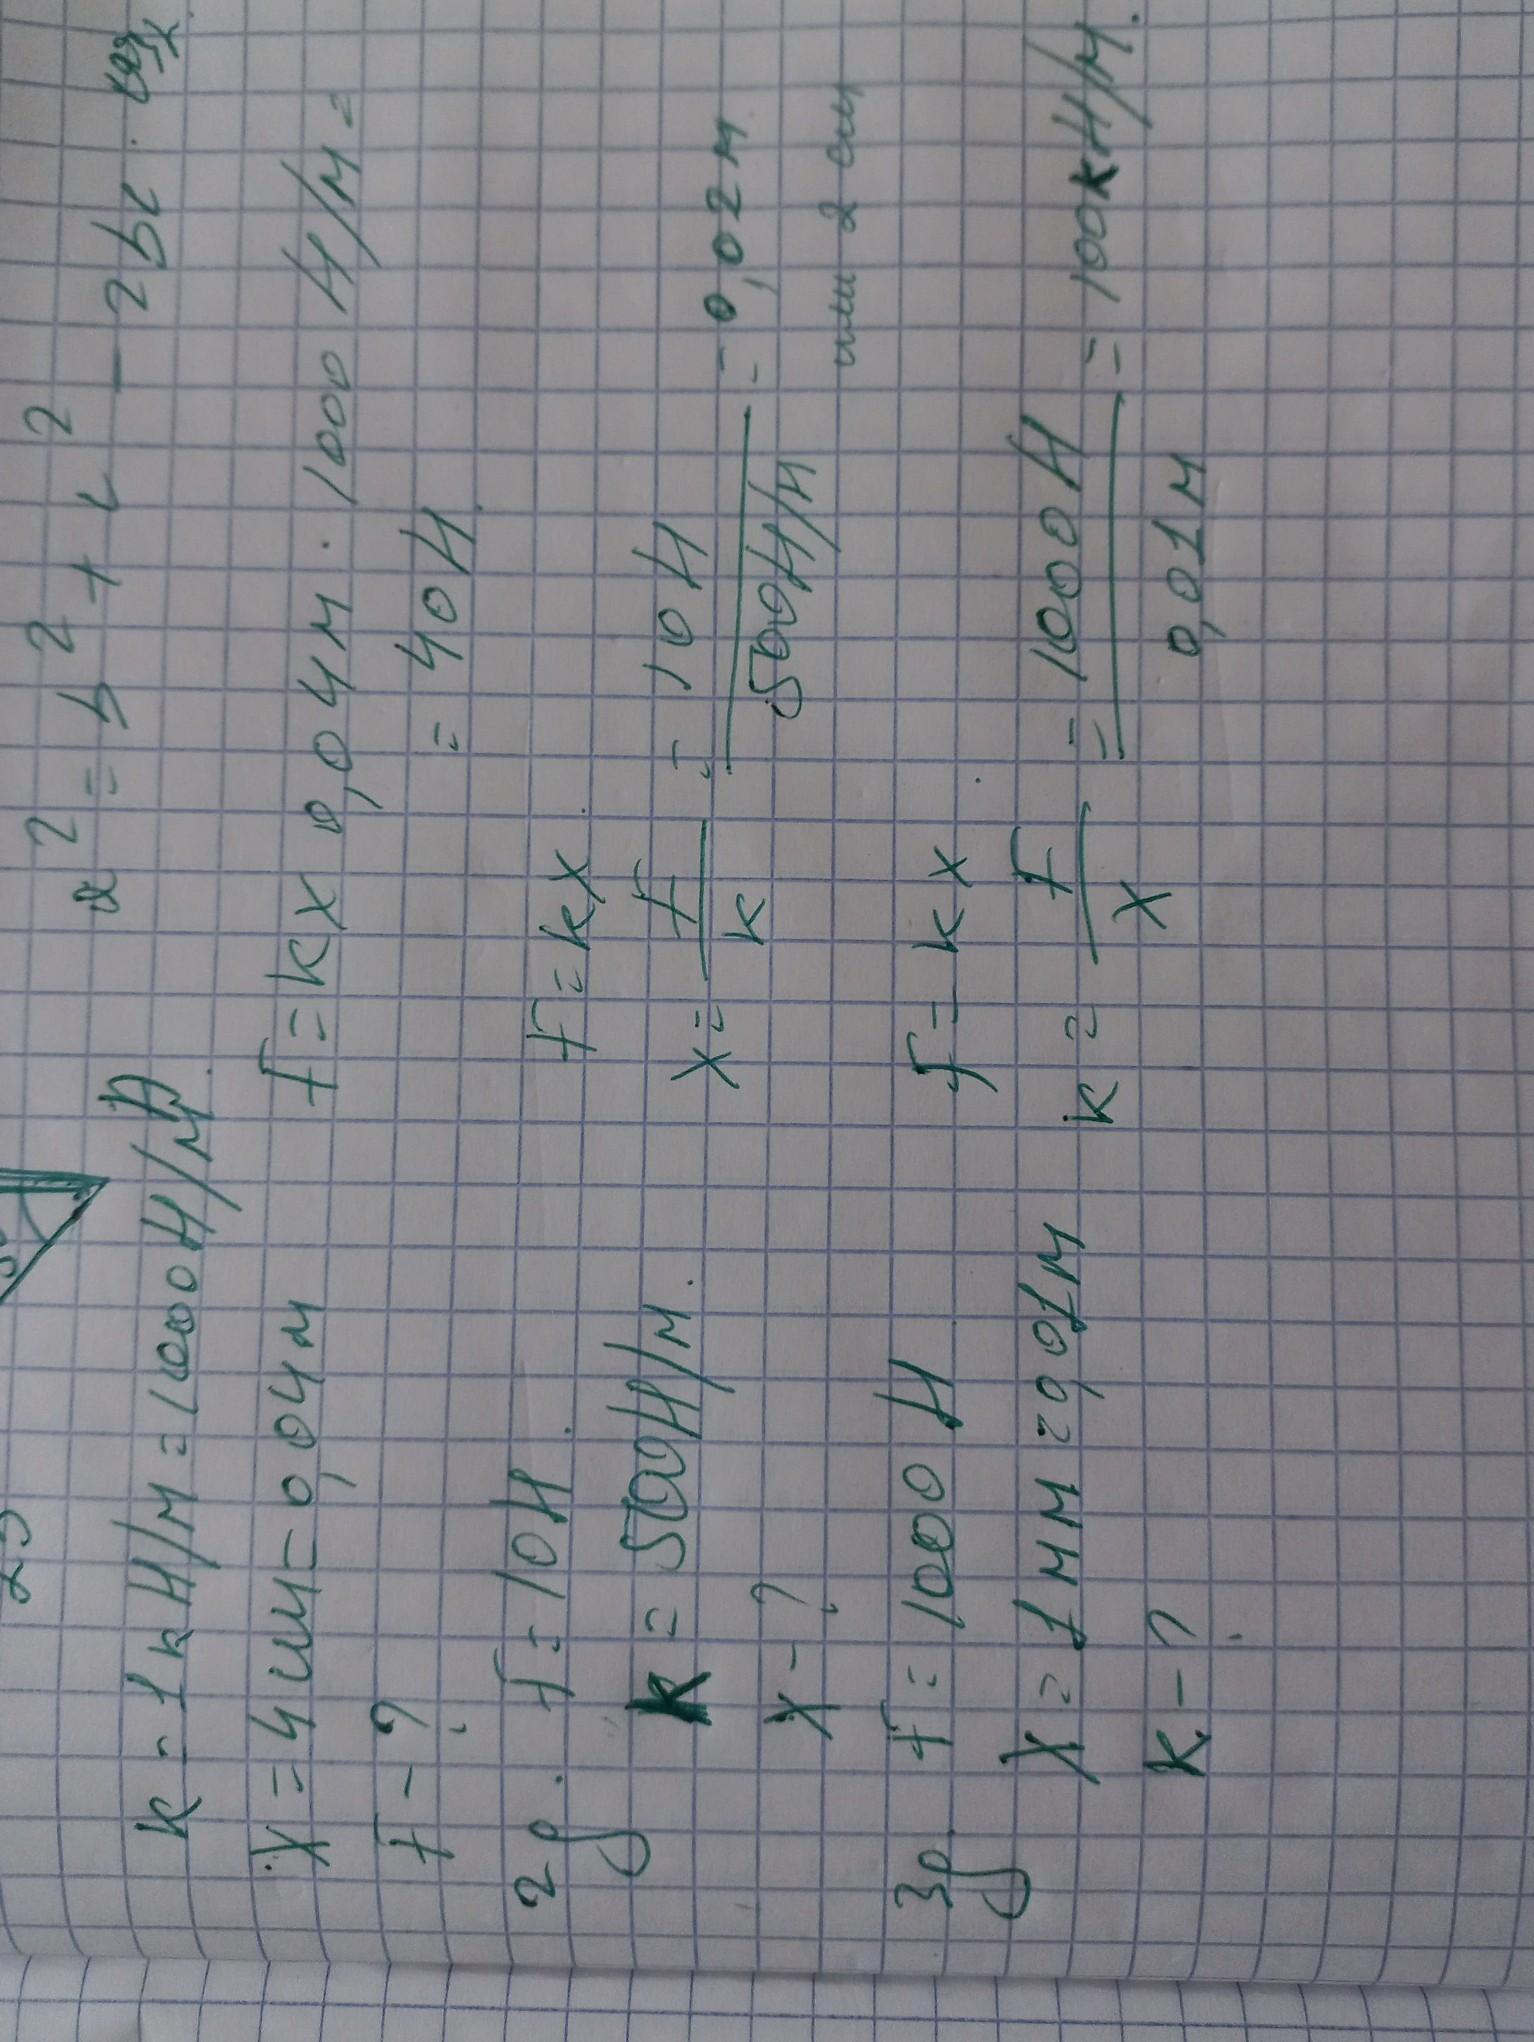 a² = b² + c² - 2bc ·
k = 1кН/м = 1000Н/м
x = 4см = 0,04м
F = kx 0,04м · 1000 Н/м =
F - ?
= 40Н
2д. F = 10Н.
F = kx
k = 500Н/м.
x = F/k = 10Н/500Н/м = 0,02м
или 2 см
x - ?
3д. F = 1000 Н
F = kx
x = 1мм = 0,01м
k = F/x = 1000Н/0,01м = 100кН/м.
k - ?